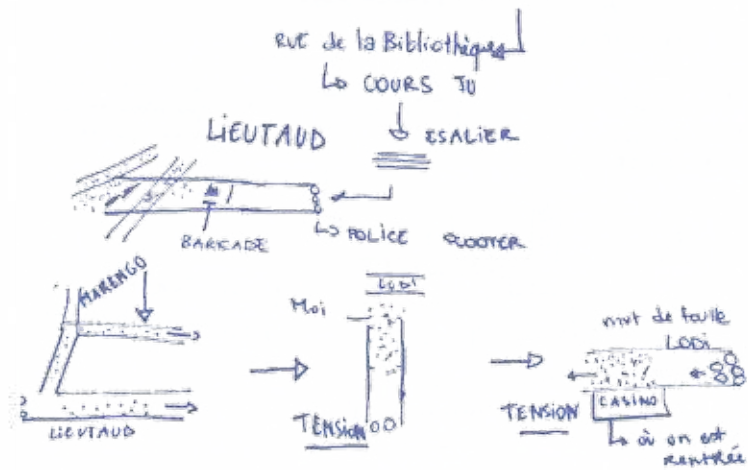 RUE de la Bibliothèque
↳ COURS JU
LIEUTAUD
ESALIER
BARICADE
↳ POLICE SCOOTER
MARENGO
LIEUTAUD
LODI
Moi
TENSION
mvt de foule
LODI
CASINO
TENSION
↳ où on est
RENTRÉE